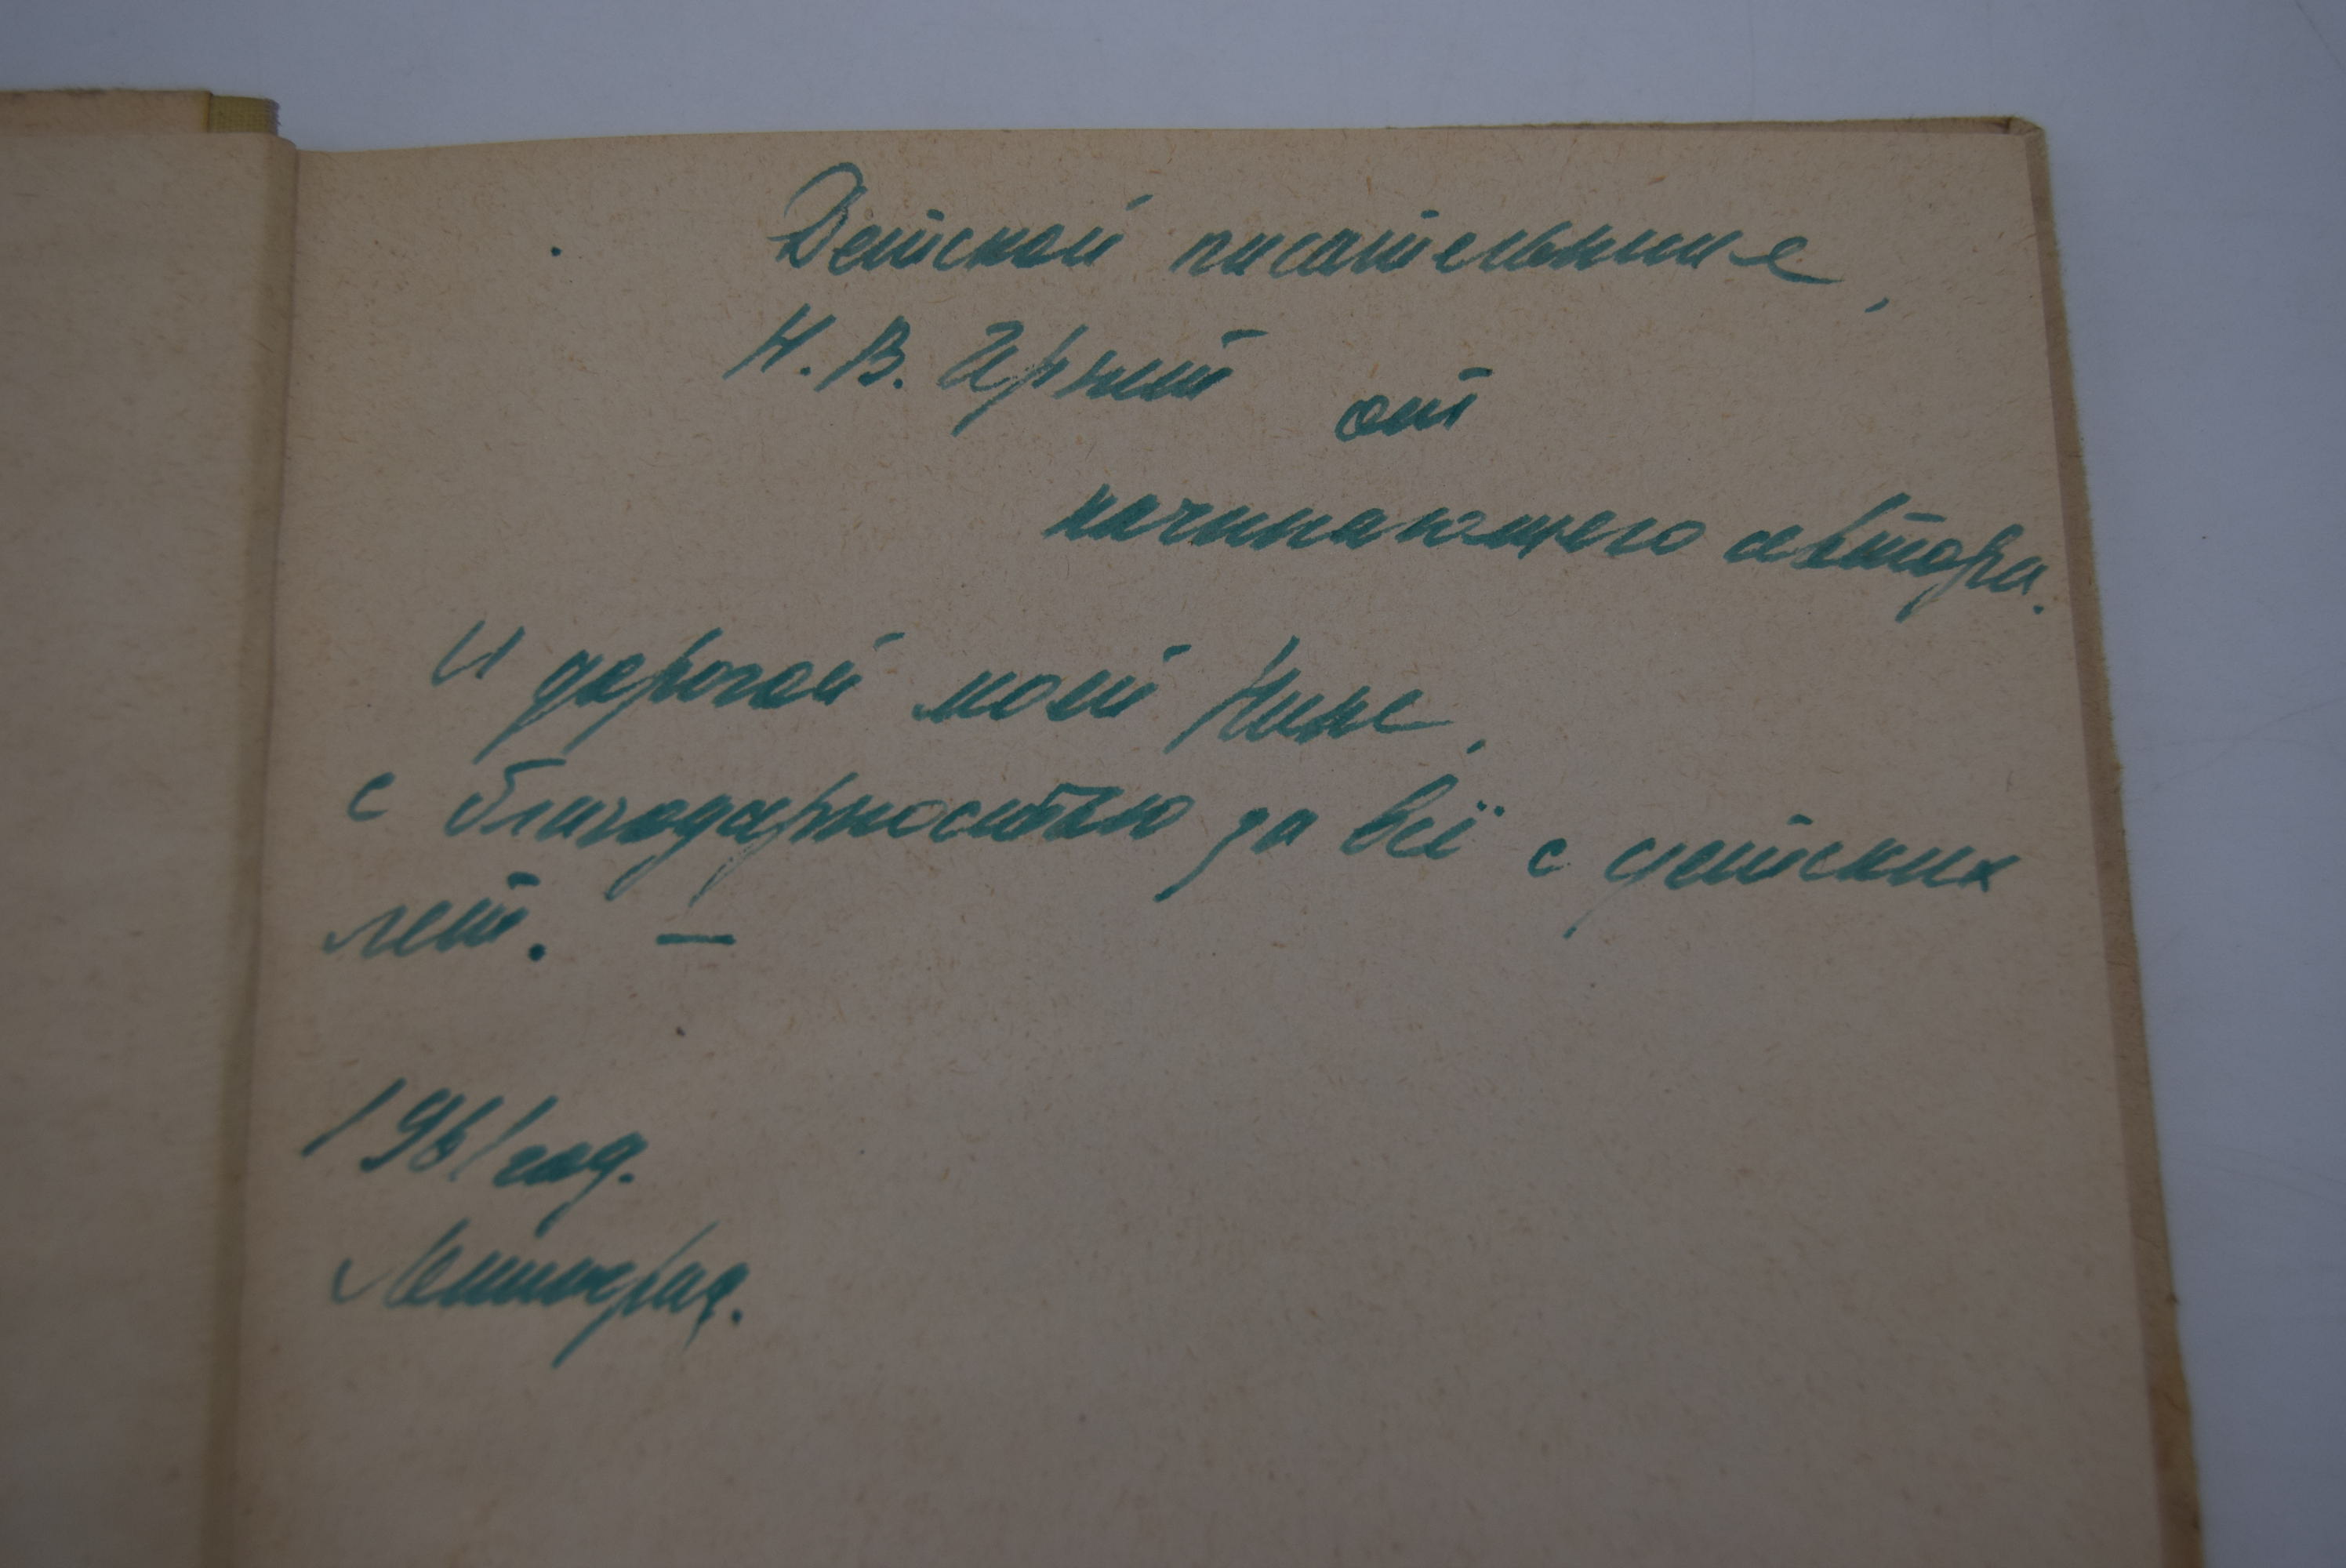 Детской писательнице,
Н. В. от
начинающего автора.
И дорогой моей Нине,
с благодарностью за всё с детских
лет. —
1961 год.
Ленинград.